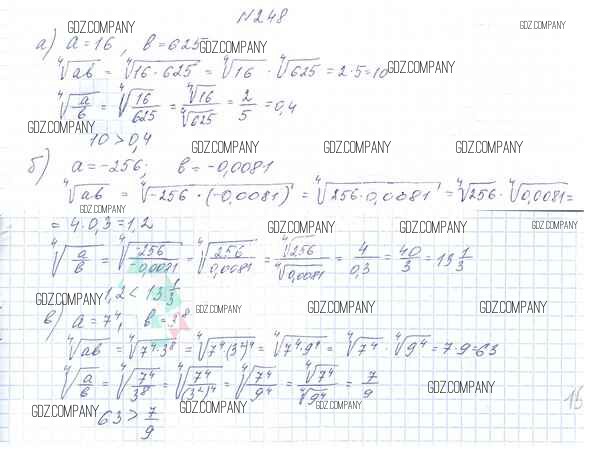 №248
GDZ.COMPANY GDZ.COMPANY
а) a=16, b=625 GDZ.COMPANY
⁴√ab = ⁴√16·625 = ⁴√16 · ⁴√625 = 2·5=10 GDZ.COMPANY
⁴√a/b = ⁴√16/625 = ⁴√16/⁴√625 = 2/5 = 0,4
GDZ.COMPANY
10 > 0,4 GDZ.COMPANY GDZ.COMPANY GDZ.COMPANY
б) a=-256; b=-0,0081
⁴√ab = ⁴√-256·(-0,0081) = ⁴√256·0,0081 = ⁴√256·⁴√0,0081 =
GDZ.COMPANY
= 4·0,3=1,2 GDZ.COMPANY GDZ.COMPANY GDZ.COMPANY
⁴√a/b = ⁴√-256/-0,0081 = ⁴√256/0,0081 = ⁴√256/⁴√0,0081 = 4/0,3 = 40/3 = 13 1/3
GDZ.COMPANY 1,2 < 13 1/3 GDZ.COMPANY GDZ.COMPANY GDZ.COMPANY
в) a=7⁴, b=3⁸
⁴√ab = ⁴√7⁴·3⁸ = ⁴√7⁴(3²)⁴ = ⁴√7⁴·9⁴ = ⁴√7⁴·⁴√9⁴ = 7·9=63
⁴√a/b = ⁴√7⁴/3⁸ = ⁴√7⁴/(3²)⁴ = ⁴√7⁴/9⁴ = ⁴√7⁴/⁴√9⁴ = 7/9 GDZ.COMPANY
GDZ.COMPANY 63 > 7/9 GDZ.COMPANY GDZ.COMPANY